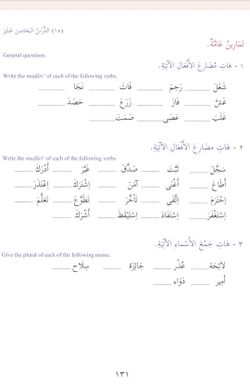 (١٥) الدَّرْسُ الخَامِسَ عَشَرَ
تَمَارِينُ عَامَّةٌ.
General questions.
١ - هَاتِ مُضَارِعَ الأَفْعَالِ الآتِيَةِ.
Write the muḍāri' of each of the following verbs.
شَغَلَ ______ رَحِمَ ______ فَاتَ ______ نَجَا ______
غَشَّ ______ فَازَ ______ زَرَعَ ______ حَصَدَ ______
غَلَبَ ______ عَصَى ______ صَمَتَ ______
٢ - هَاتِ مضَارِعَ الأَفْعَالِ الآتِيَةِ.
Write the muḍāri' of each of the following verbs.
سَجَّلَ ______ ثَبَّتَ ______ صَدَّقَ ______ غَيَّرَ ______ أَدْرَكَ ______
أَطَاعَ ______ أَغْنَى ______ آمَنَ ______ اِشْتَرَكَ ______ اِعْتَذَرَ ______
اِحْتَرَمَ ______ اِتَّقَى ______ تَأَخَّرَ ______ تَطَوَّعَ ______ تَعَلَّمَ ______
اِسْتَغْفَرَ ______ اِسْتَفَادَ ______ اِسْتَيْقَظَ ______ أَشْرَكَ ______
٣ - هَاتِ جَمْعَ الأَسْمَاءِ الآتِيَةِ.
Give the plural of each of the following nouns.
لائِحَة ______ عُذْر ______ جَائِزَة ______ سِلَاح ______
أَمِير ______ دَوَاء ______
١٣١